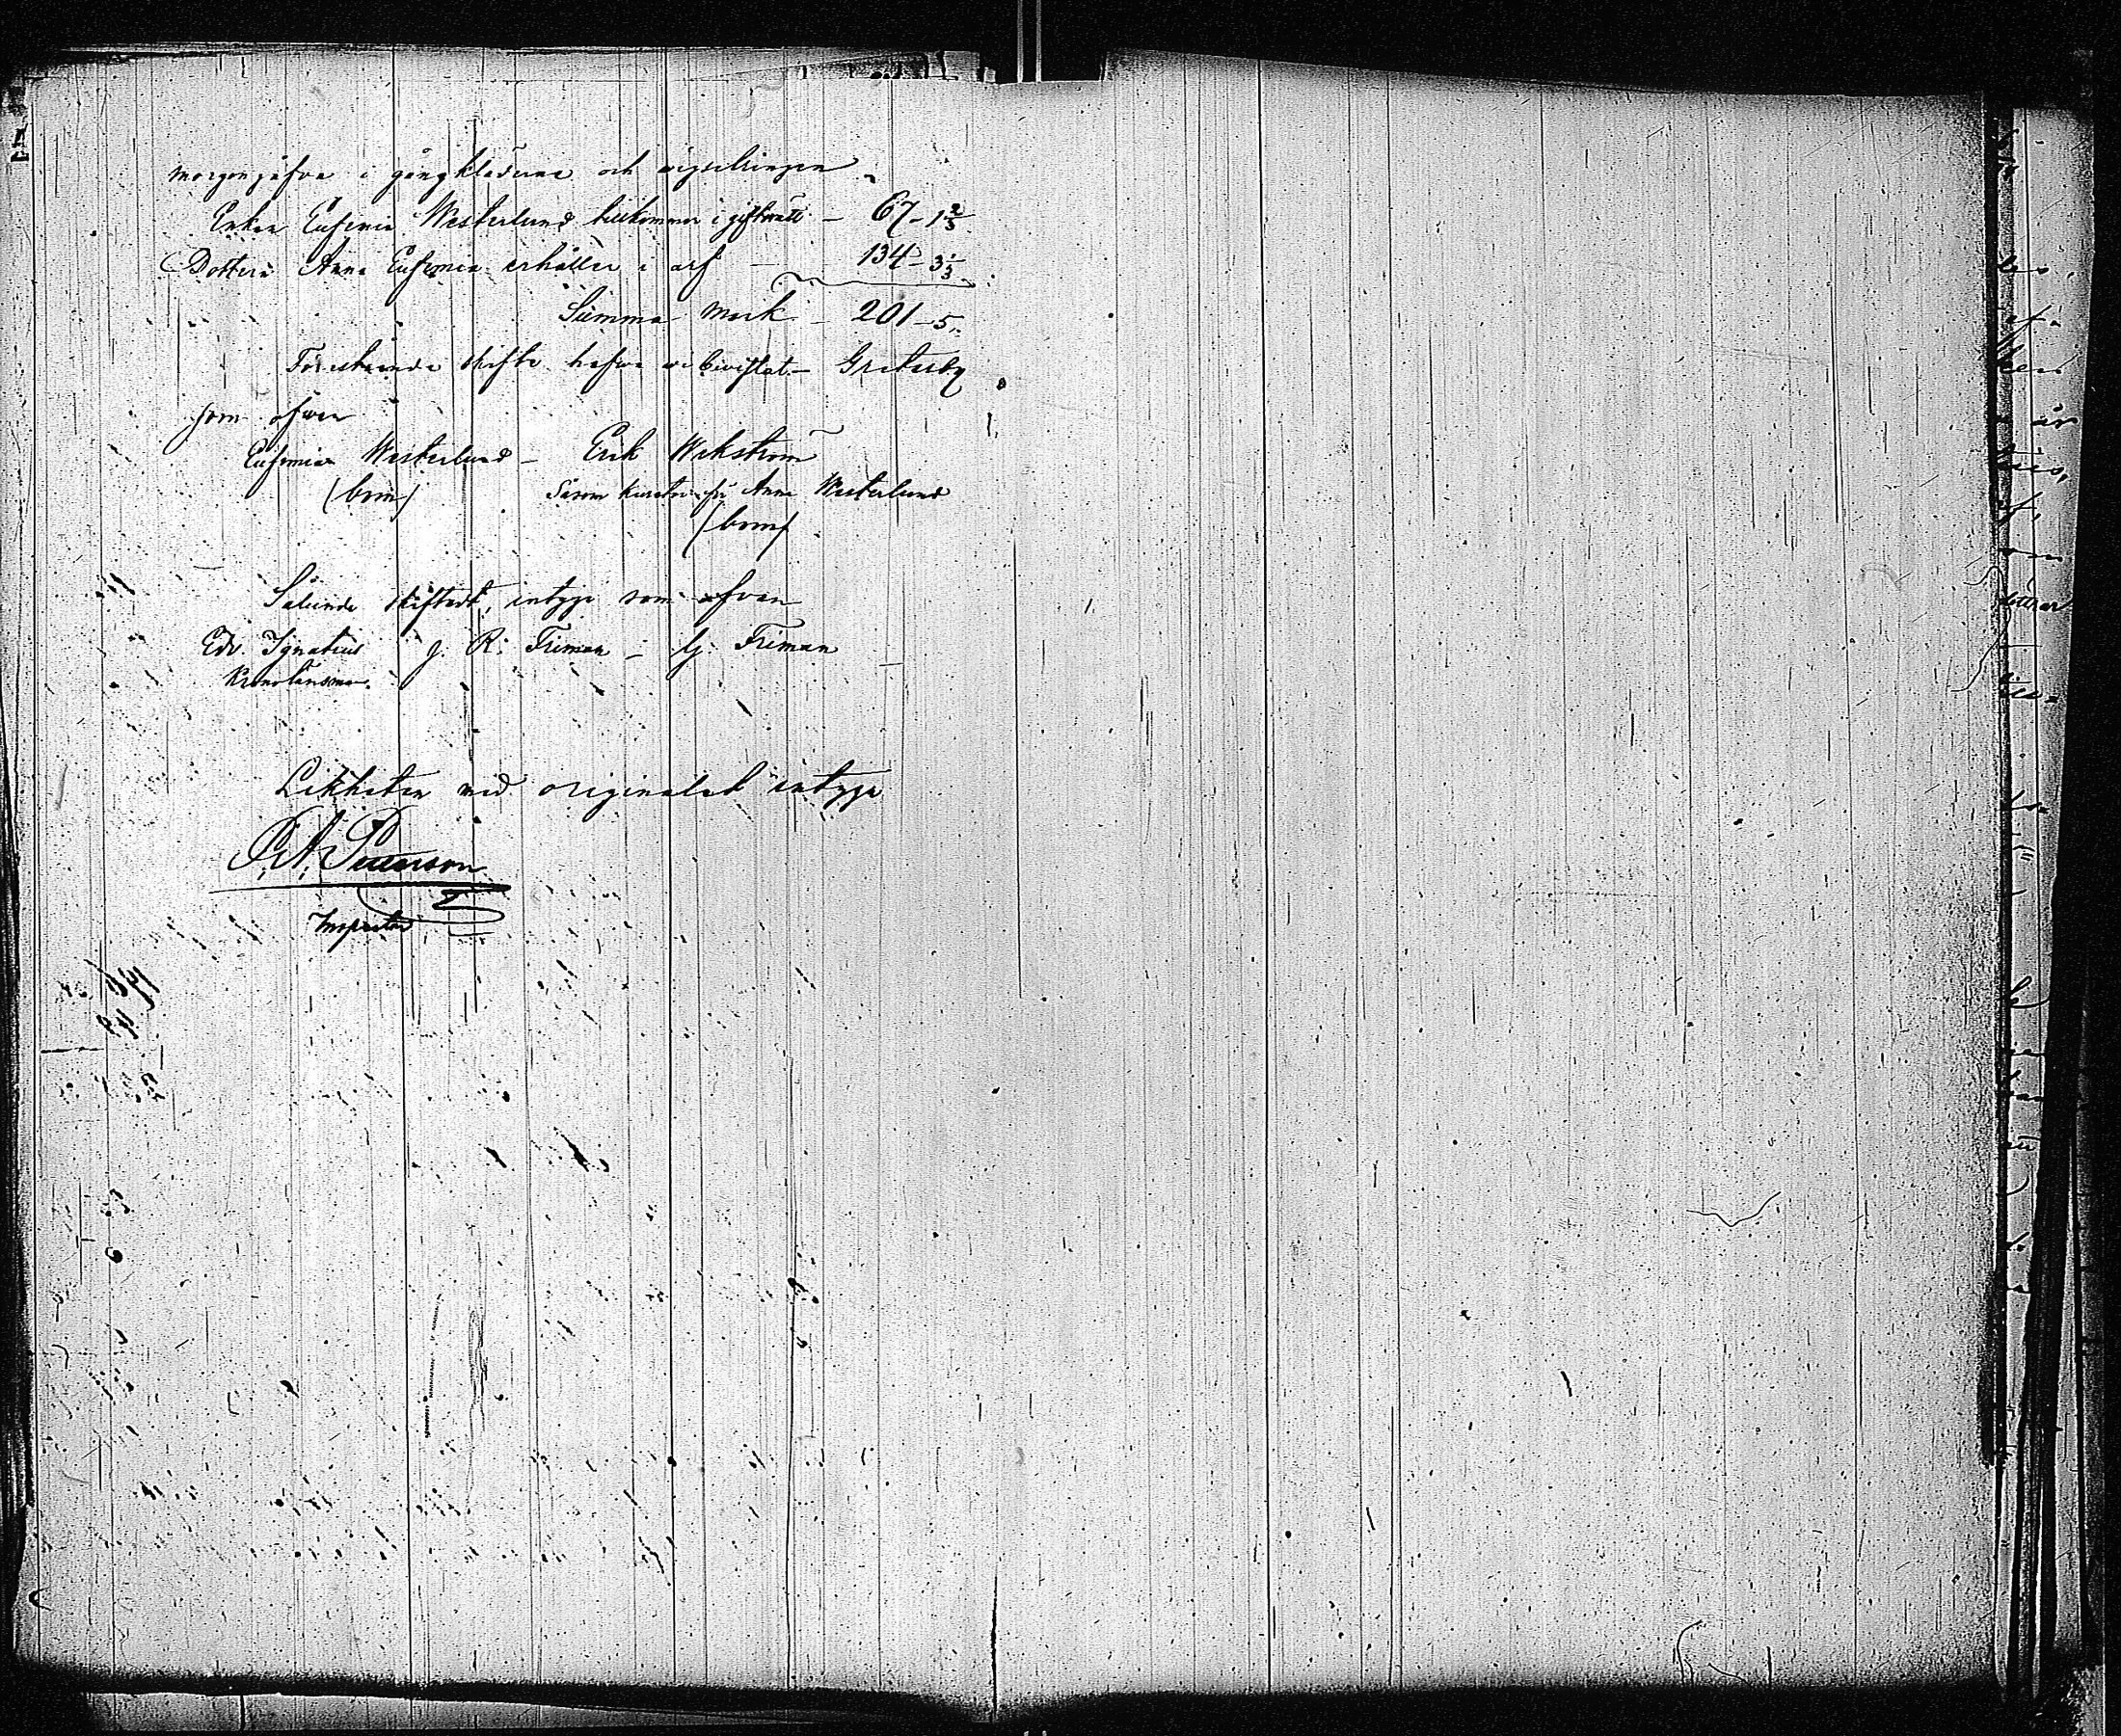 morgongåfva i gångkläderna och vigselringen
Enkan Eufemia Westerlund tillkommer i giftorätt – 67–1 2/3
Dottern Anna Eufemia erhåller i arf – 134–3 1/3
Summa Mark – 201–5
Förestående skifte hafva vi bevistat – Gretarby
som ofvan
Eufemia Westerlund – Erik Wekström
(bom) Såsom kurator för Anna Westerlund
(bom)
Sålunda skiftadt, intyga som ofvan
Edv. Ignatius J. R. Friman – G. Friman
Kronolänsman.
Likheten med originalet intyga
Petterson
Inspector